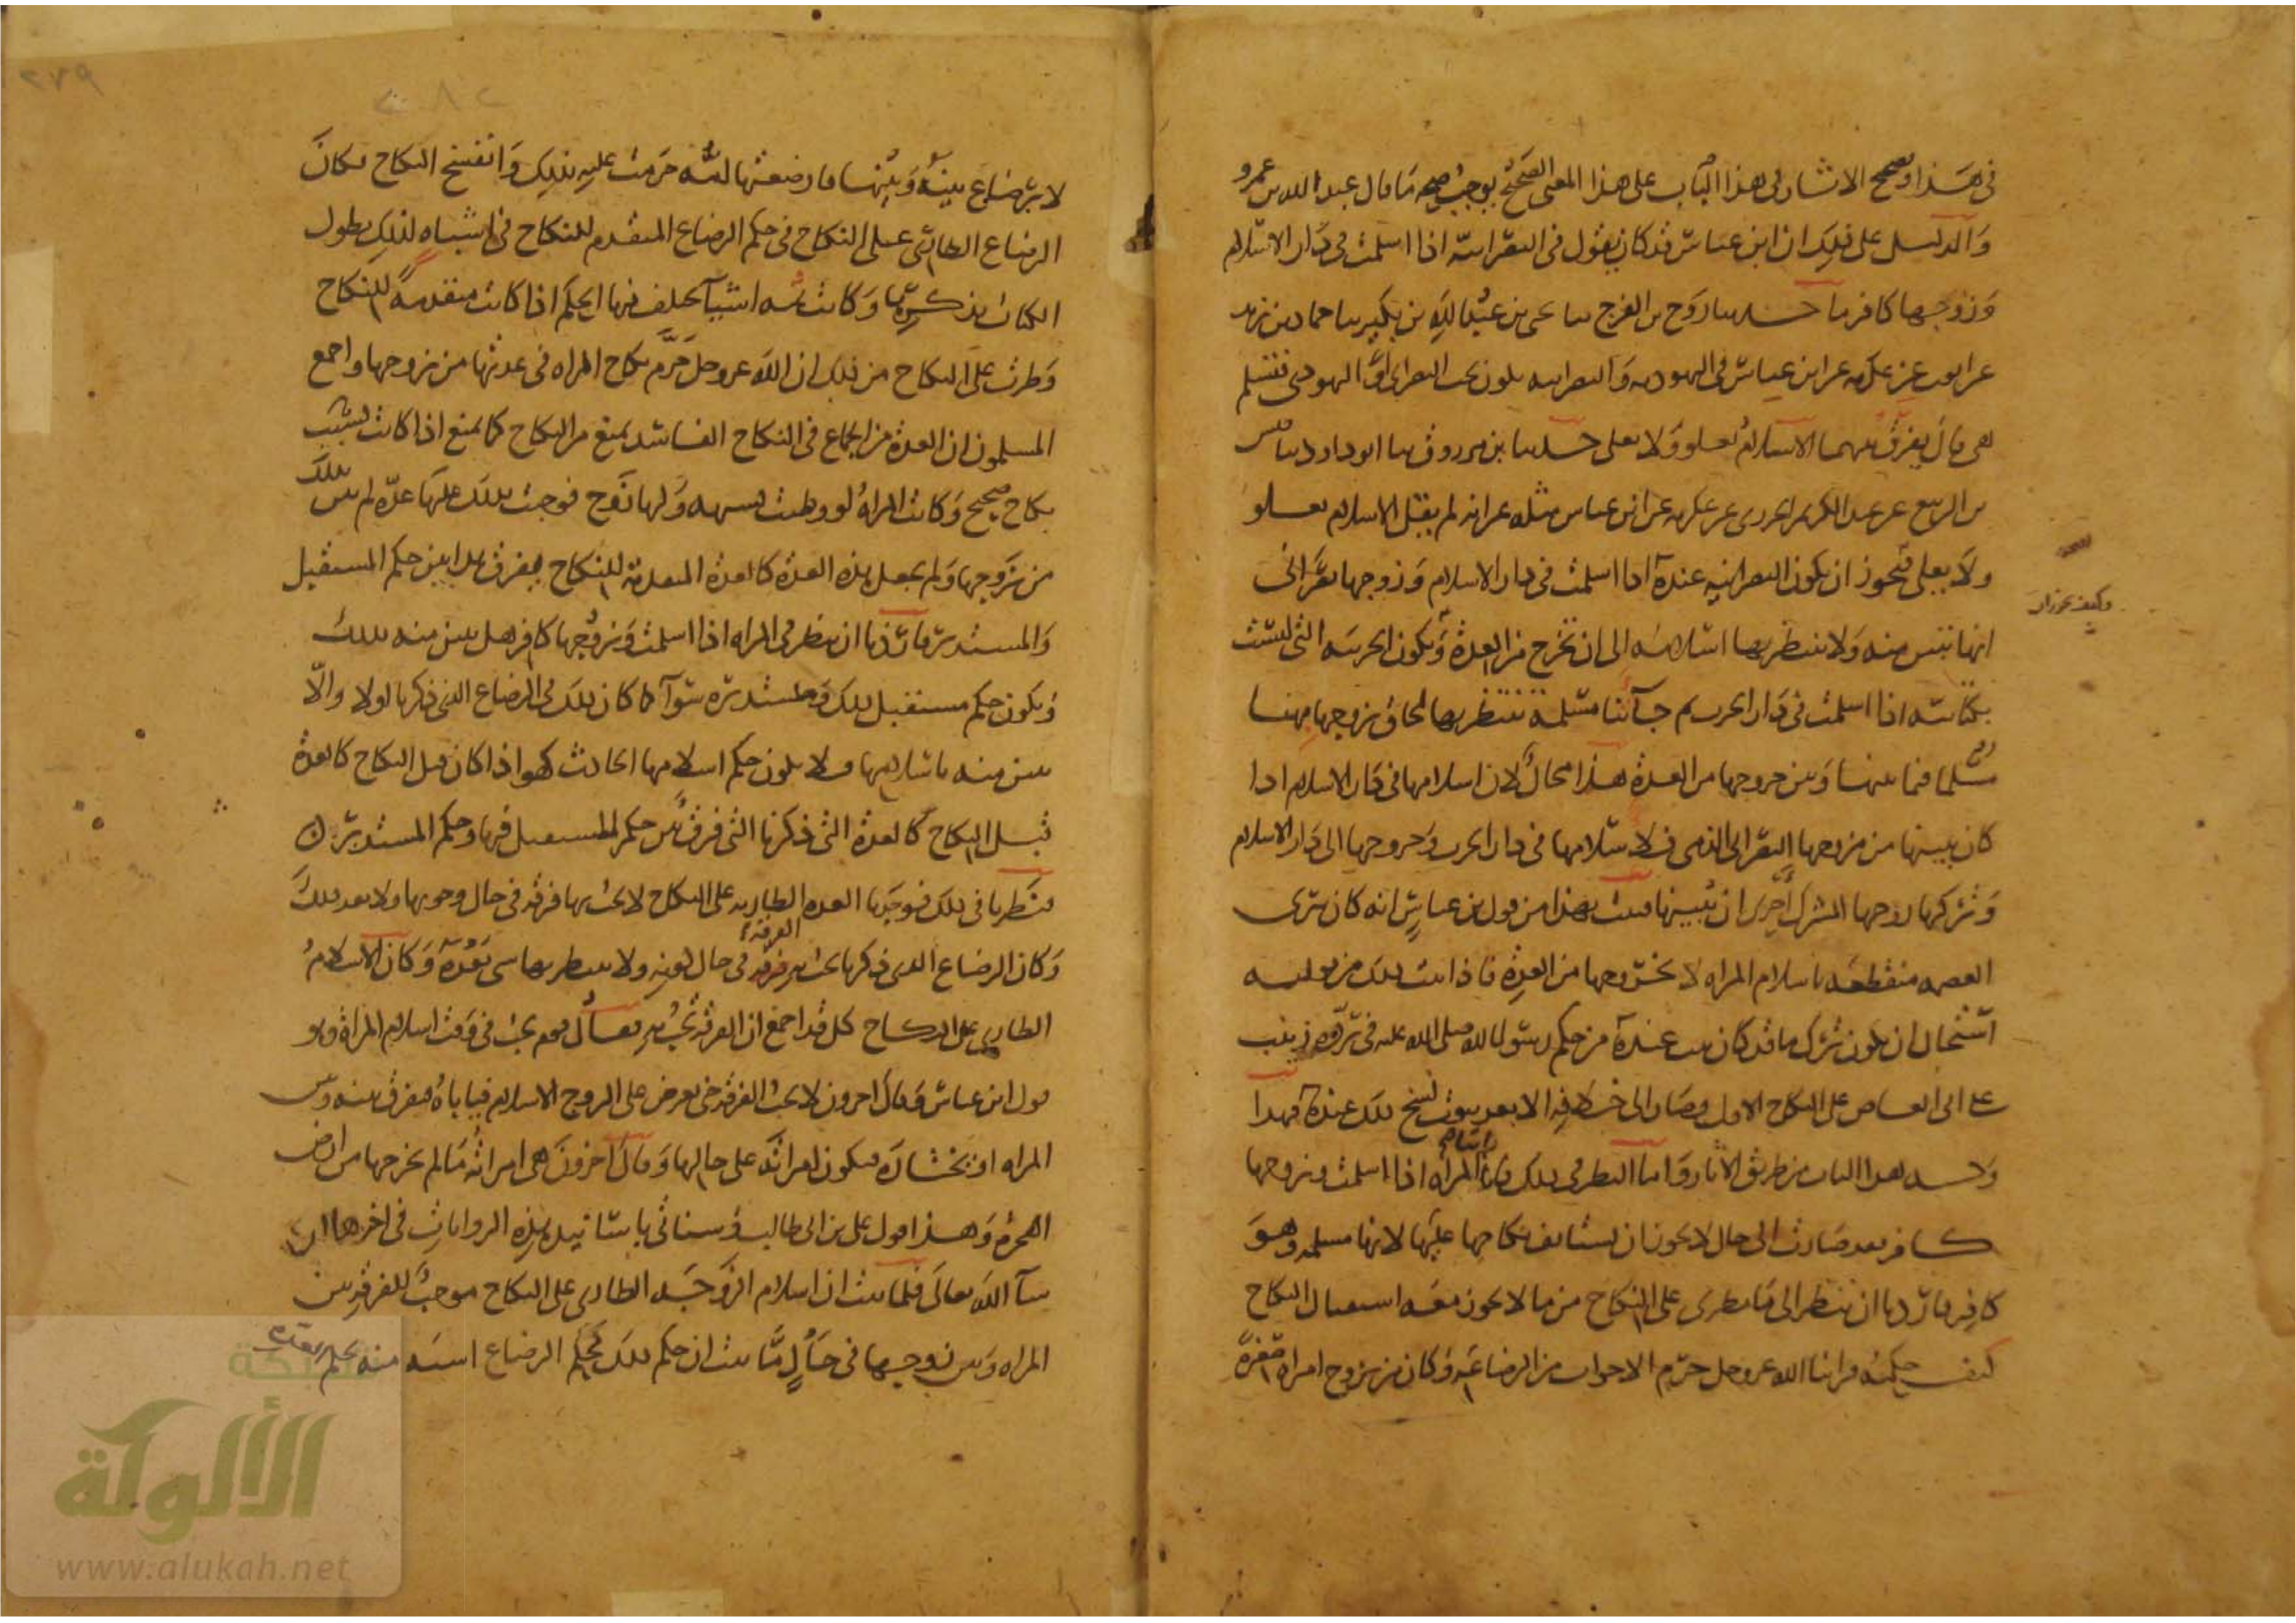 في هذا وتصحيح الآثار في هذا الباب على هذا المعنى الصحيح يوجب صحة ما قال عبد الله بن عمرو
والدليل على ذلك ان ابن عباس قد كان يقول في النصرانية اذا اسلمت في دار الاسلام
وزوجها كافر ما حدثنا روح بن الفرج ثنا يحيى بن عبد الله بن بكير ثنا حماد بن زيد
عن ايوب عن عكرمة عن ابن عباس في اليهودية والنصرانية تكون تحت النصراني او اليهودي فتسلم
هي قال يفرق بينهما الاسلام يعلو ولا يعلى حدثنا ابن مرزوق ثنا ابو داود ثنا قيس
بن الربيع عن عبد الكريم الجزري عن عكرمة عن ابن عباس مثله غير انه لم يقل الاسلام يعلو
ولا يعلى فيجوز ان تكون النصرانية عنده اذا اسلمت في دار الاسلام وزوجها نصراني
انها تبين منه ولا ينتظر بها اسلامه الى ان تخرج من العدة وتكون الحربية التي ليست
بكتابية اذا اسلمت في دار الحرب ثم جآءتنا مسلمة تنتظر بها لحاق زوجها بها
مسلما فيما بينها وبين خروجها من العدة هذا محال لان اسلامها في دار الاسلام اذا
كان يبينها من زوجها النصراني الذمي فاسلامها في دار الحرب وخروجها الى دار الاسلام
وتركها زوجها المشرك احرى ان يبينها فثبت بهذا من قول ابن عباس انه كان يرى
العصمة منقطعة باسلام المراة لا بخروجها من العدة فاذا ثبت ذلك من قوله
استحال ان يكون ترك ما قد كان ثبت عنده من حكم رسول الله صلى الله عليه في رده زينب
على ابي العاص على النكاح الاول وصار الى خلافه الا بعد ثبوت نسخ ذلك عنده فهذا
وجه هذا الباب من طريق الآثار واما النظر في ذلك فان المراة اذا اسلمت وزوجها
كافر فقد صارت الى حال لا يجوز ان يستانف نكاحها عليها لانها مسلمة وهو
كافر فاردنا ان ننظر الى ما يطرى على النكاح من ما لا يجوز معه استقبال النكاح
كيف حكمه فراينا الله عز وجل حرم الاخوات من الرضاعة وكان من تزوج امراة صغيرة
لا رضاع بينه وبينها فارضعتها امه حرمت عليه بذلك وانفسخ النكاح فكان
الرضاع الطارئ على النكاح في حكم الرضاع المتقدم للنكاح في اشباه لذلك يطول
الكتاب بذكرها وكانت ثمه اشيآء يختلف فيها الحكم اذا كانت متقدمة للنكاح
وطرت على النكاح من ذلك ان الله عز وجل حرم نكاح المراة في عدتها من زوجها واجمع
المسلمون ان العدة من الجماع في النكاح الفاسد يمنع من النكاح كما يمنع اذا كانت بسبب
نكاح صحيح وكانت المراة لو وطئت بشبهة ولها زوج فوجبت بذلك عليها عدة لم تبن بذلك
من زوجها ولم يجعل هذه العدة كالعدة المتقدمة للنكاح ففرق في هذا بين حكم المستقبل
والمستدبر فاردنا ان ننظر في المراة اذا اسلمت وزوجها كافر هل تبين منه بذلك
ويكون حكم مستقبل ذلك ومستدبره سوآء كما كان ذلك في الرضاع الذي ذكرنا اولا والا
تبين منه باسلامها فلا يكون حكم اسلامها الحادث كهو اذا كان قبل النكاح كالعدة
قبل النكاح كالعدة التي ذكرنا التي فرق بين حكم المستقبل فيها وحكم المستدبر
فنظرنا في ذلك فوجدنا العدة الطارية على النكاح لا يجب بها فرقة في حال وجوبها ولا بعد ذلك
وكان الرضاع الذي ذكرنا يجب به الفرقة في حال كونه ولا ينتظر بها شي بعده وكان الاسلام
الطاري على النكاح كل قد اجمع ان الفرقة تجب به فقال قوم يجب في وقت اسلام المراة وهو
قول ابن عباس وقال اخرون لا يجب الفرقة حتى يعرض على الزوج الاسلام فياباه فيفرق بينه وبين
المراة او يختاره فيكون امراته على حالها وقال اخرون هي امراته ما لم يخرجها من ارض
الهجرة وهذا قول علي بن ابي طالب وسناتي باسانيد هذه الروايات في اخر هذا ان
شآء الله تعالى فلما ثبت ان اسلام الزوجة الطاري على النكاح موجب للفرقة بين
المراة وبين زوجها في حال ما ثبت ان حكم ذلك بحكم الرضاع اشبه منه بحكم
شبكة
الألوكة
www.alukah.net